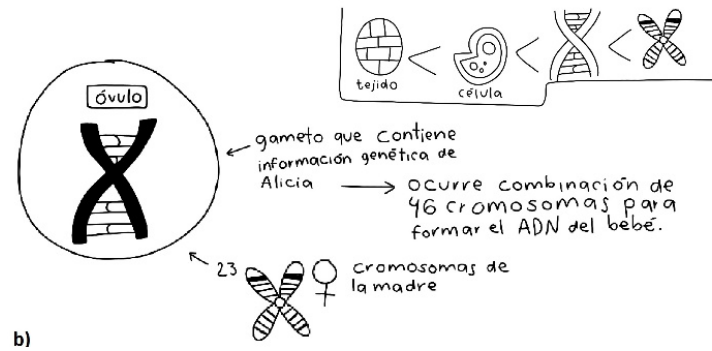 tejido < célula < <
óvulo
gameto que contiene
información genética de
Alicia → ocurre combinación de
46 cromosomas para
formar el ADN del bebé.
23 ♀ cromosomas de
la madre
b)